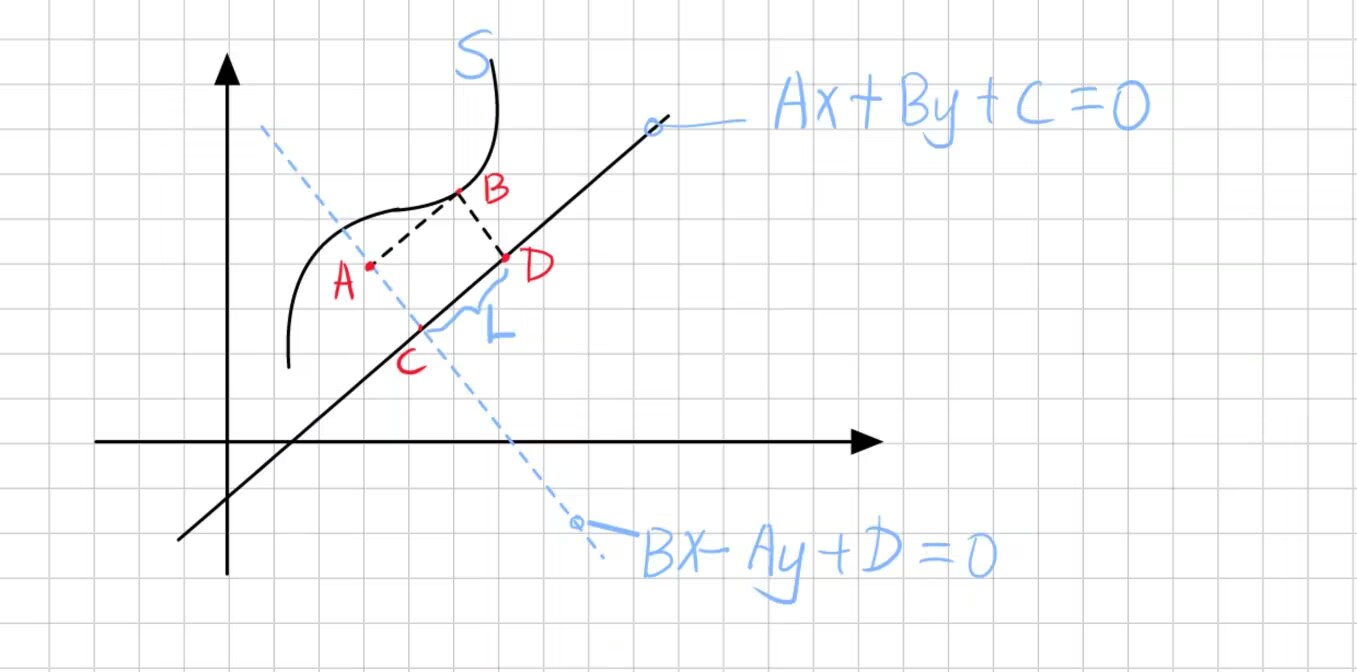 S
Ax+By+C=0
B
A
D
L
C
Bx-Ay+D=0